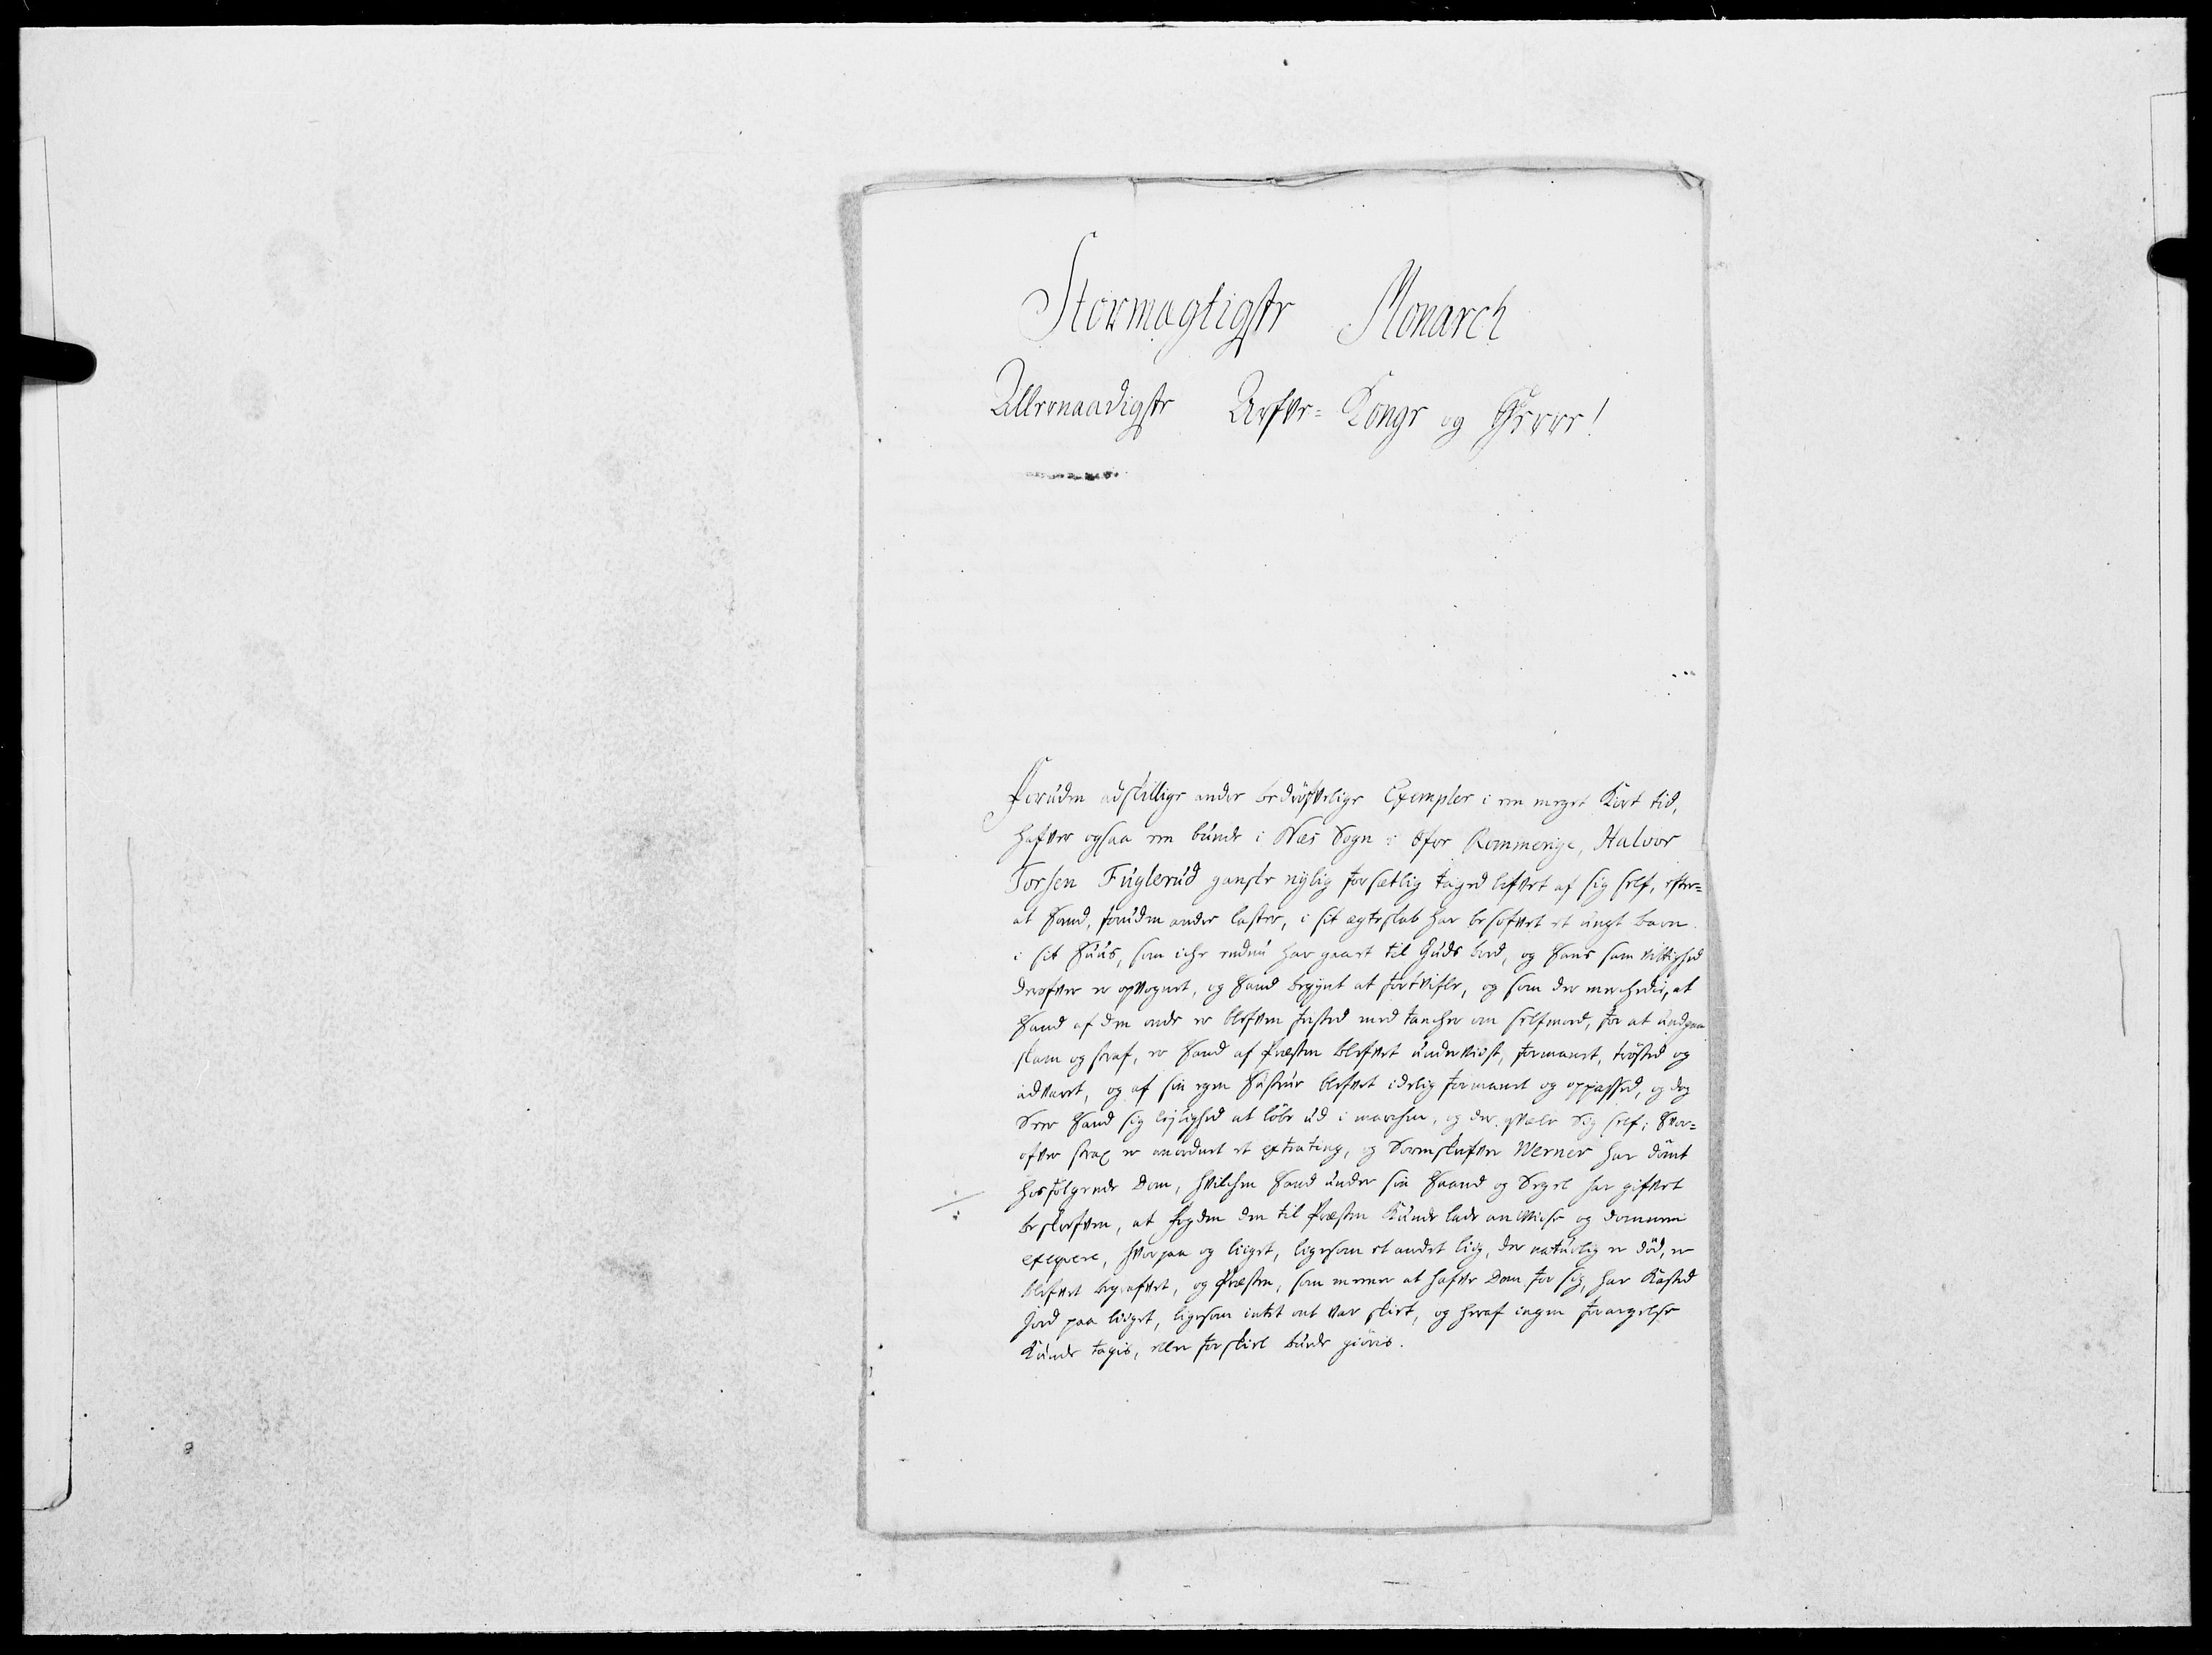 Stormægtigste Monarch
Allernaadigste Arfve-Konge og Herre!
Foruden adskillige andre bedröfvelige Exempler i een meget kort tid,
hafver ogsaa een bunde i Næs Sogn i Öfre Rommerige, Halvor
Torsen Fuglerud ganske nylig forsætlig taged lifvet af sig self, efter=
at hand, foruden andre laster, i sit ægteskab har besofvet et ungt barn
i sit huus, som iche endnu har gaaet til Guds bord, og hans samvittighed
derofver er opvognet, og hand begynt at fortvifle, og som der merchedes, at
hand af den onde er blefven fristed med tancher om selfmord, for at undgaa
skam og straf, er hand af Præsten blefvet underviist, formanet, tröstet og
advaret, og af sin egen hustrue blefvet idelig formanet og oppassed, og dog
seer hand sig leylighed at löbe ud i marchen, og der qvæle sig self; hvor=
ofver strax er anordnet et extrating, og Sorenskrifver Werner har dömt
hosfölgende Dom, hvilchen hand under sin Haand og Segel har gifvet
beskrefven, at fogden den til Præsten kunde lade anviise og dommen
exeqvere, hvorpaa og liiget, ligesom et andet liig, der naturlig er död, er
blefvet begrafvet, og Præsten, som meener at hafve Dom for sig, har kasted
Jord paa liiget, ligesom intet ont var skeet, og heraf ingen forargelse
kunde tagis, eller forskiel burde giöris.